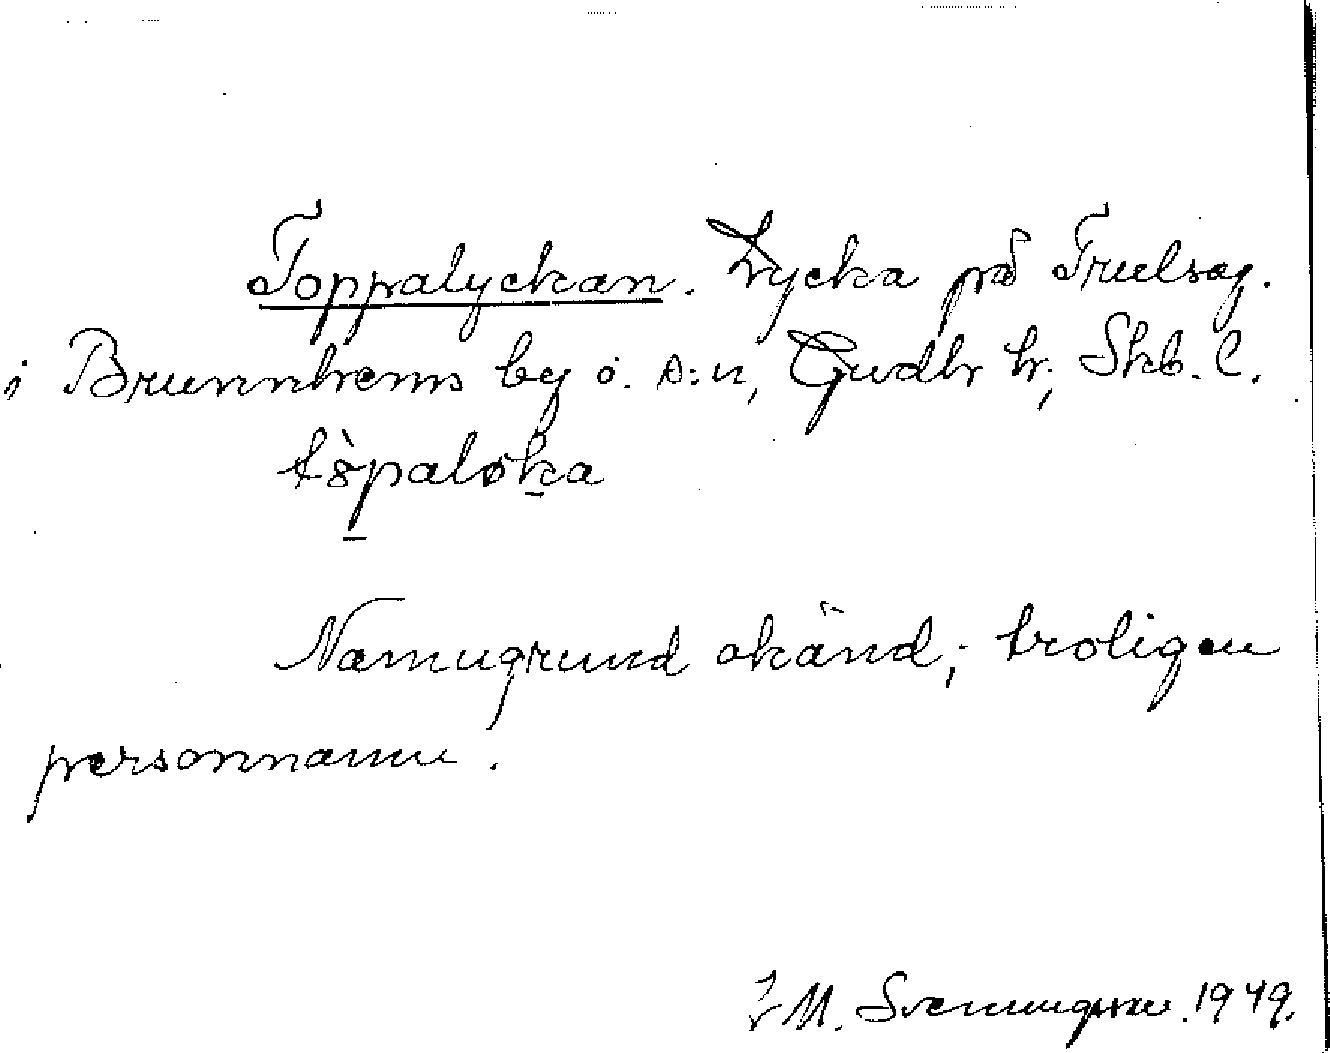 Toppalyckan. Lycka på Truelseg.
i Brunnhems by o. s:n, Gudh hr; Skb. l.
Namngrund okänd; troligen
personnamn.
J M. Svenungsson. 1949.